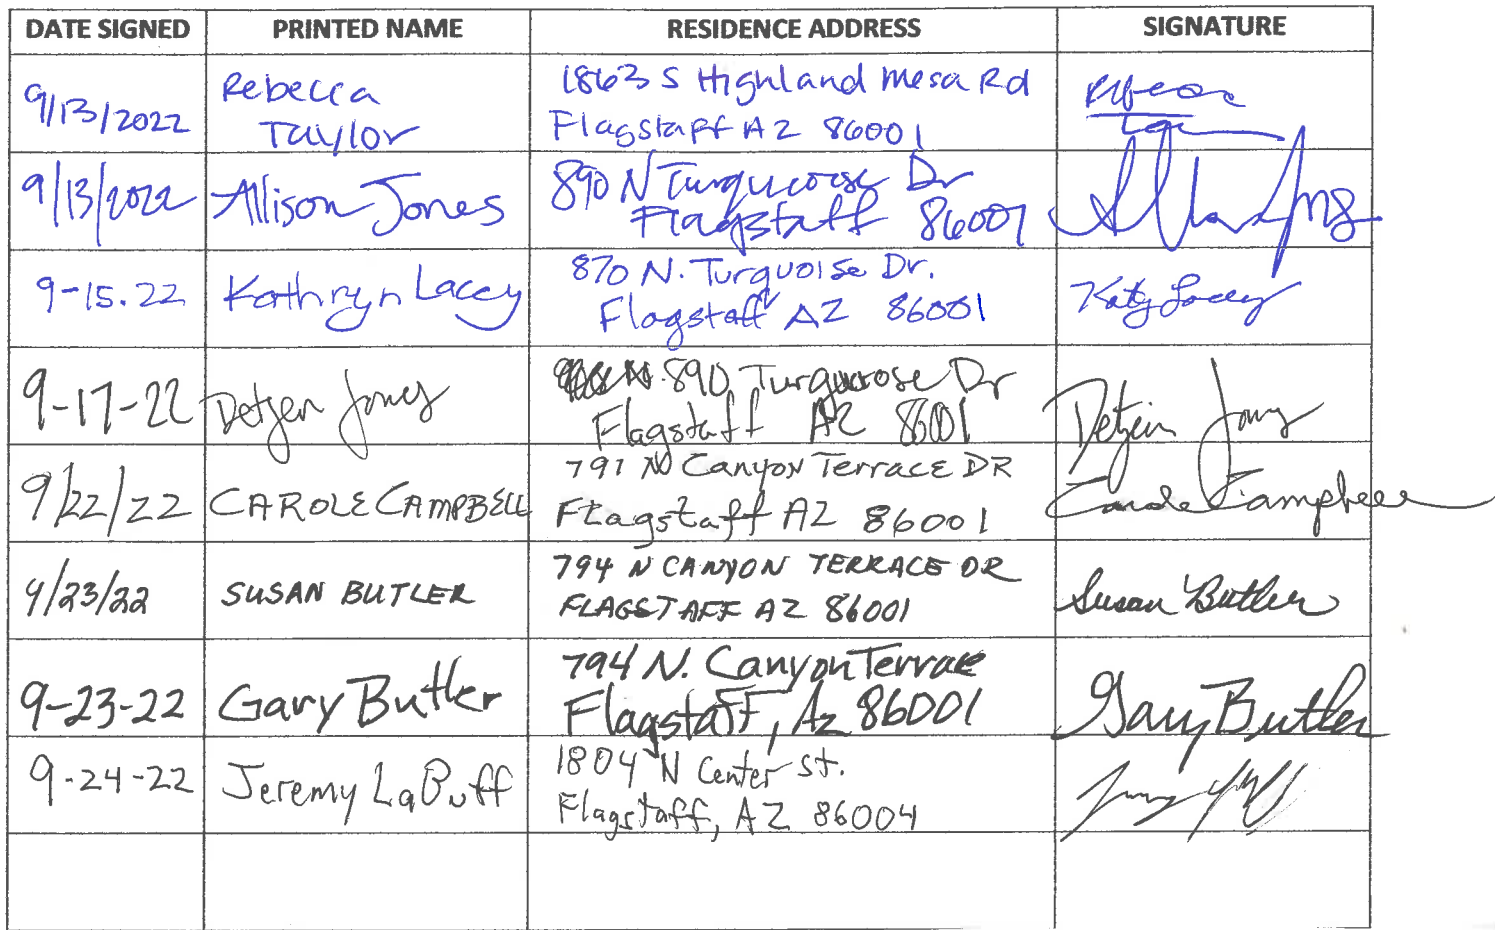 DATE SIGNED PRINTED NAME RESIDENCE ADDRESS SIGNATURE
9/13/2022 Rebecca Taylor 1863 S Highland Mesa Rd
Flagstaff AZ 86001
9/13/2022 Allison Jones 890 N Turqucoise Dr
Flagstaff 86001
9-15.22 Kathryn Lacey 870 N. Turquoise Dr.
Flagstaff AZ 86001 Katy Lacey
9-17-22 Detjen Jones 890 Turquoise Dr
Flagstaff AZ 86001 Detjen Jones
9/22/22 CAROLE CAMPBELL 791 N Canyon Terrace DR
Flagstaff AZ 86001 Carole Campbell
9/23/22 SUSAN BUTLER 794 N CANYON TERRACE DR
FLAGSTAFF AZ 86001 Susan Butler
9-23-22 Gary Butler 794 N. Canyon Terrace
Flagstaff, Az 86001 Gary Butler
9-24-22 Jeremy LaBuff 1804 N Center St.
Flagstaff, AZ 86004